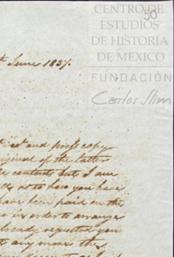 CENTRO DE
ESTUDIOS
DE HISTORIA
DE MEXICO
FUNDACIÓN
Carlos Slim
50
June 1837.
and press copy
original of the latter
contents but I am
as to how you have
have been paid on the
in order to arrange
already requested you
to any more the